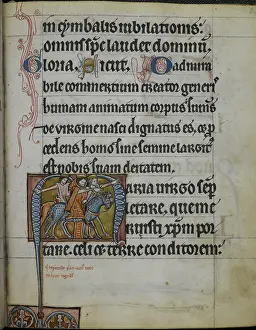 in cymbalis iubilationis:
omnis sp̄c laudet dominū
Gloria. Sicut. O admira
bile commercium creator generis
humani animatum corpus sumēs
de virgine nasci dignatus es, & p
cedens homo sine semine largit
est nobis suam deitatem.
Maria virgo sēp
letare, que me
ruisti xp̄m por
tare. celi & terre conditorem: